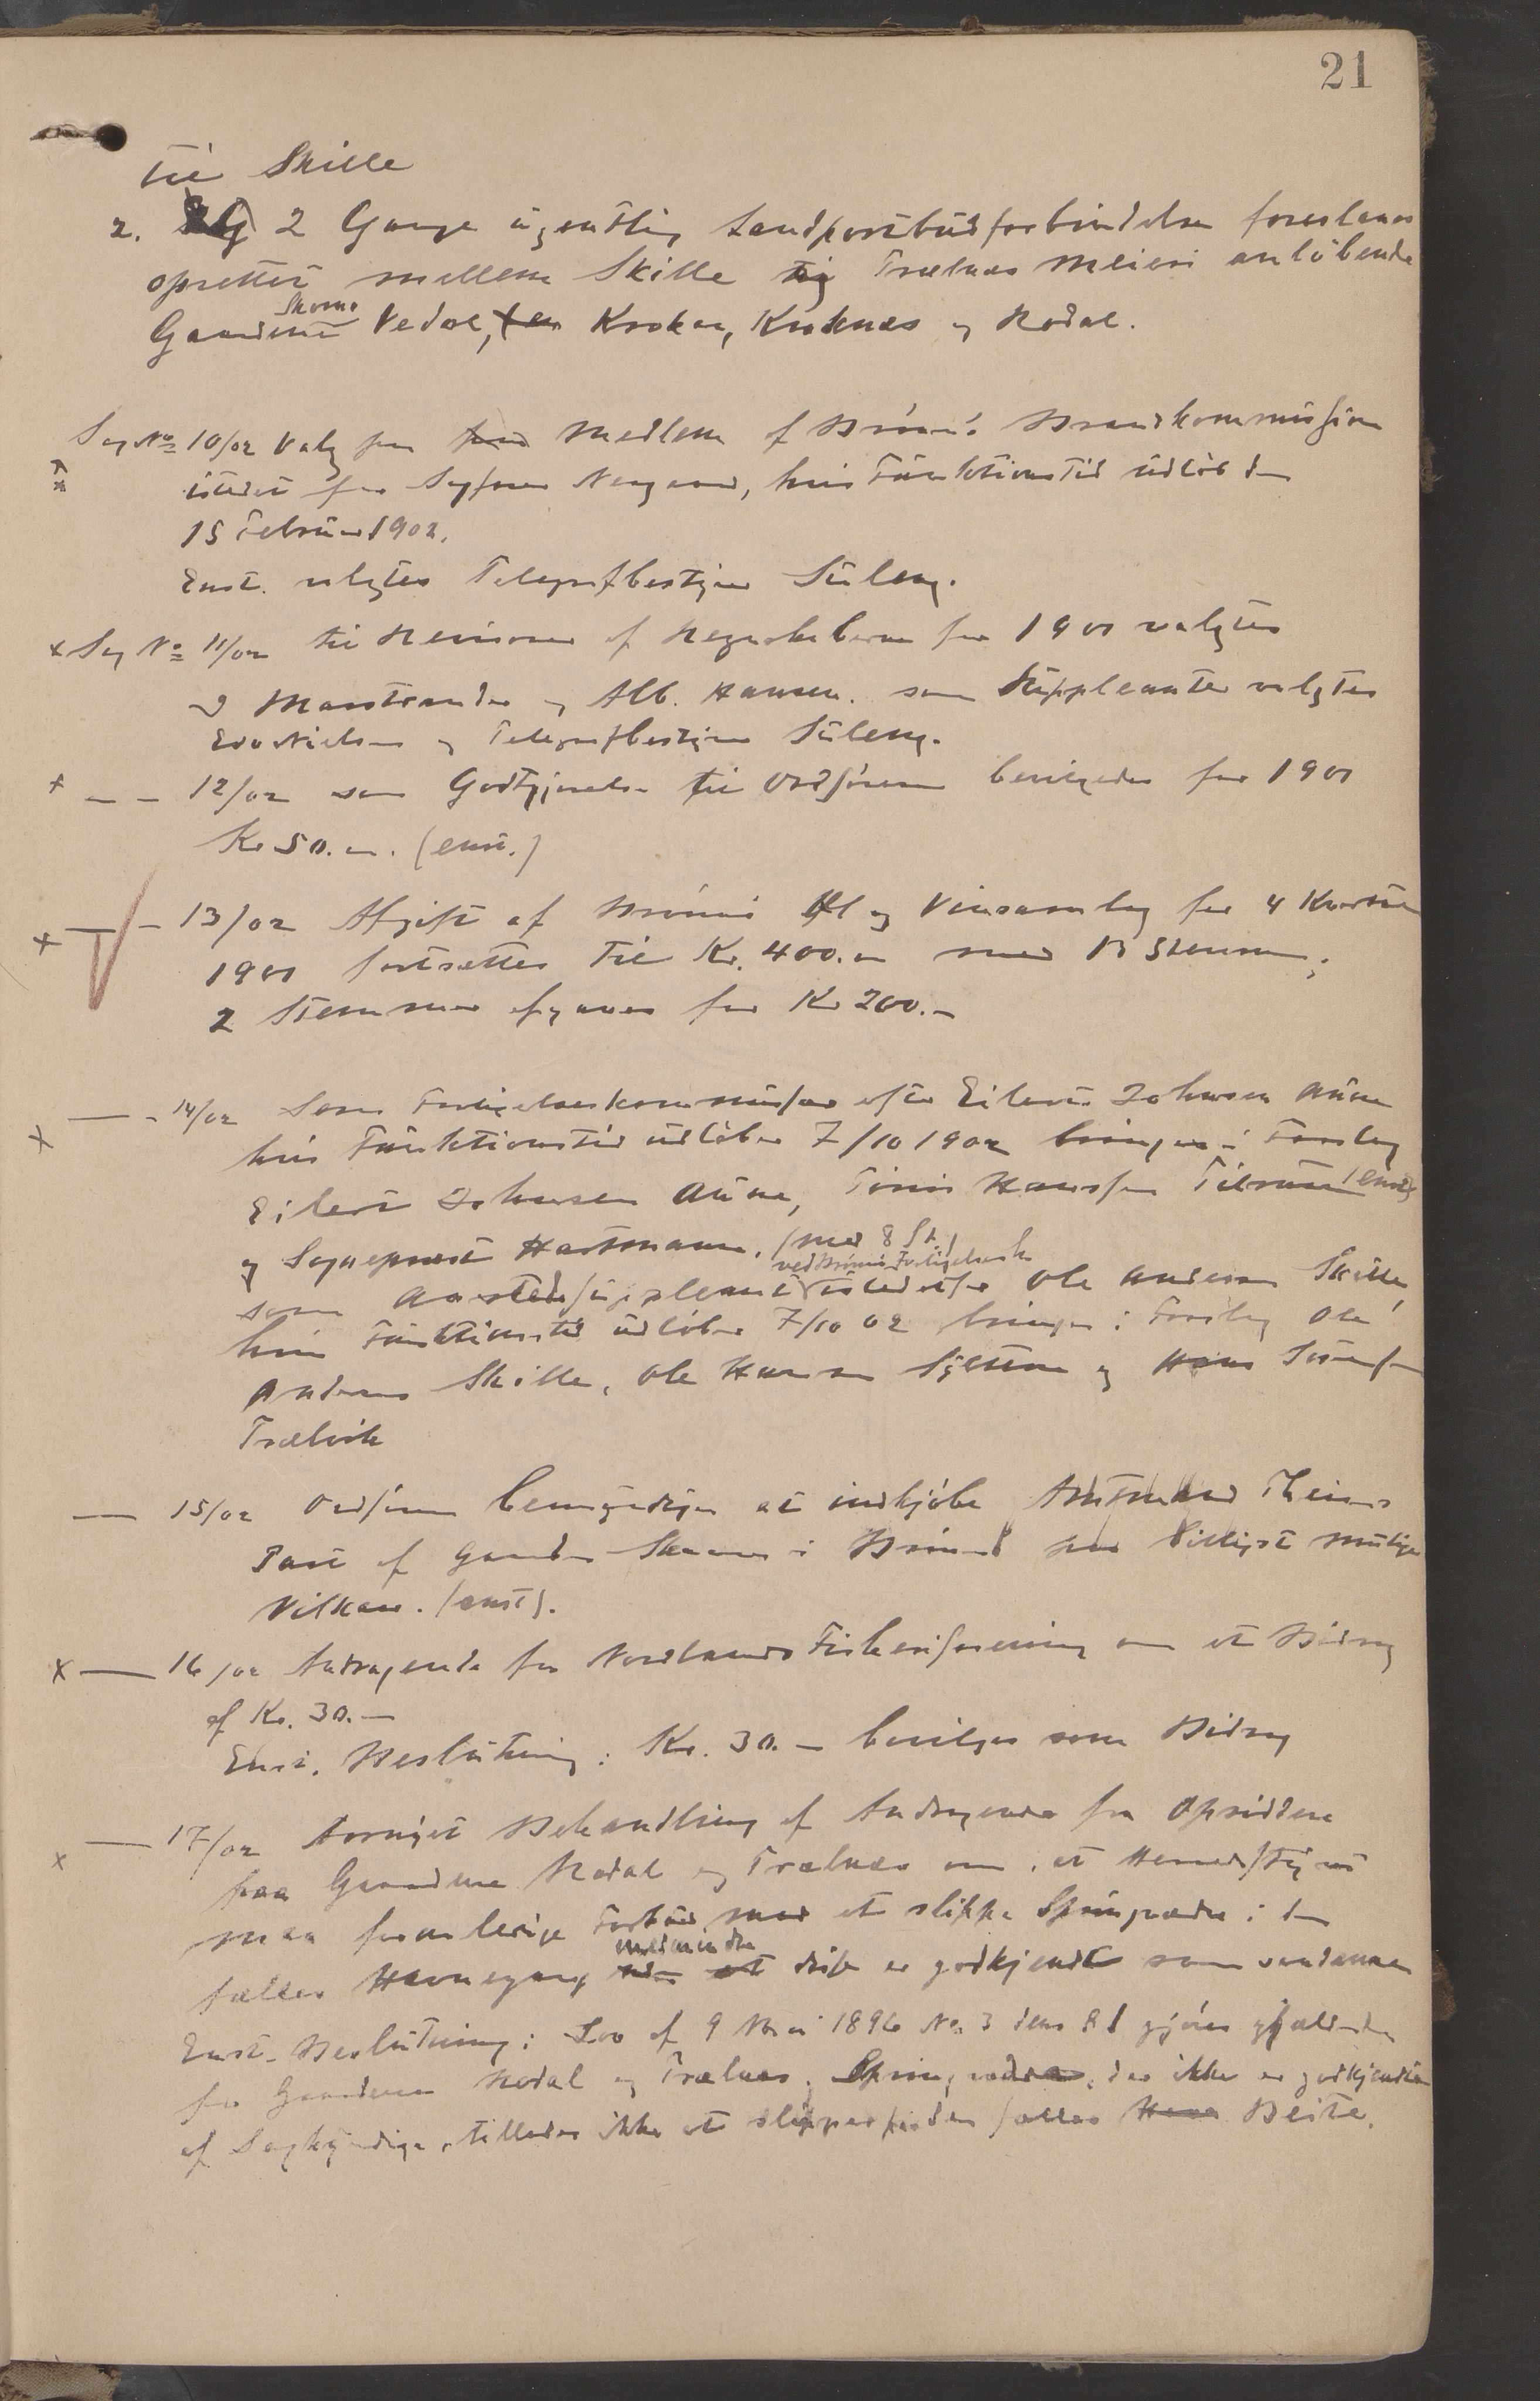 21
til Skille
2. 2 Gange ugentlig Landpostbudforbindelse foreslaaes
oprettet mellem Skille og Trælnes Meieri anløbende
Skomo
Gaardene Vedal, Kroken, Kroknes og Rodal.
Sag No 10/02 Valg paa Medlem af Brønnø Brandkommission
istedet for Sagfører Norgaard, hvis Funktionstid udløb den
15 Februar 1902.
Enst. valgtes Telegrafbestyrer Süleng.
x Sag No 11/02 til Revisorer af Regnskaberne for 1901 valgtes
J Marstrander og Alb. Hansen. som Suppleanter valgtes
Edv Nielsen og Telegrafbestyrer Süleng.
x - - 12/02 som Godtgjørelse til Ordføreren bevilgedes for 1901
Kr 50.00. (enst.)
x — - 13/02 Afgift af Brønnø Øl og Vinsamlag for 4 Kvartal
1901 fastsættes til Kr. 400.00 med 13 Stemmer;
2 Stemmer afgaves for Kr 200.-
x — - 14/02 Som Forligelseskommissær efter Eilert Johnsen Aune
hvis Funktionstid udløber 7/10 1902 bringes i Forslag
Eilert Johnsen Aune, Tønnes Hansen Tilrem (enst)
og Sogneprest Hartmann. (med 8 St.)
ved Brønnø Forligelsesk.
som Suppleant istedetfor Ole Andersen Skille,
hvis Funktionstid udløber 7/10 02 bringes i Forslag Ole
Andersen Skille, Ole Hansen og Hans
Trælvik
— 15/02 Ordføreren bemyndiges at indkjøbe Amtmand Theisens
Part af Gaarden i Brønnø paa billigst mulige
Vilkaar. (enst).
x — 16/02 Andragende fra Nordlands Fiskeriforening om et Bidrag
af Kr. 30.—
Enst. Beslutning: Kr. 30.— bevilges som Bidrag
x — 17/02 Fornyet Behandling af Andragende fra Opsiddere
paa Gaardene Rodal og Trælnes om, at Herredsstyret
maa foranledige Forbud mod at slippe Springvædre i den
medmindre
fælles Havnegang disse er godkjendt som saadanne
Enst. Beslutning: Lov af 9 Mai 1896 No 3 dens § 1 gjøres gjældende
for Gaardene Rodal og Trælnes. Springvædre, der ikke er godkjendte
af Sagkyndige, tillades ikke at slippes paa den fælles Beite.